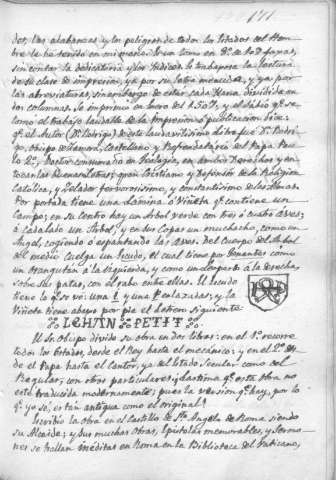 171
dos, las alabanzas, y los peligros de todos los Estados del Hom-
bre: la he tenido en mi
sin contar la dedicatoria y los Indices: lo trabajoso la lectura
de su clase de impresion, ya por su letra menuda, y ya por
las abreviaturas, sin embargo de estar cada Plana dividida en
dos columnas. Se imprimio en Enero del 1507, y el sabio qe. se
tomo el trabajo laudable de la Impresion, y publicacion dice:
qe. el Autor (Dn. Rodrigo) de este laudavilissimo libro fue Dn. Rodri-
go, Obispo de Zamora, Castellano, y Refrendatario del Papa Pau-
lo 2º., Doctor consumado en Teologia, en ambos Derechos y en
todas las buenas letras, gran Cristiano y Defensor de la Religion
Catolica, y Zelador fervorosisimo, y constantisimo de las Almas.
Por portada tiene una Lámina o Viñeta qe. contiene un
Campo; en su centro hay un Arbol verde con tres o cuatro Aves;
a cada lado un Arbol, y en sus Copas un muchacho, como un
Angel, cogiendo o espantando las Aves. Del cuerpo del Arbol
del medio cuelga un Escudo, el cual tiene por Tenantes como
un Orangutan a la izquierda, y como un Leopardo a la derecha,
sobre sus patas, con el rabo entre ellas. El Escudo
tiene lo qe. se vé: una I y una P enlazadas, y la
Viñeta tiene abajo por pie el letrero siguiente
IEHAN PETIT
El Sr. Obispo divide su obra en dos libros: en el 1º. recorre
todos los Estados, desde el Rey hasta el mecánico; y en el 2º. des-
de el Papa hasta el Cantor, ya del Estado Secular como del
Regular, con otros particulares: y lastima qe. esta obra no
esté traducida modernamente, pues la version qe. hay, por lo
qe. yo sé, es tan antigua como el original!
Escribio la otra en el Castillo de Sto. Angelo de Roma siendo
su Alcaide; y sus muchas Obras, Epistolas memorables, y Sermo-
nes se hallan ineditas en Roma en la Biblioteca del Vaticano,